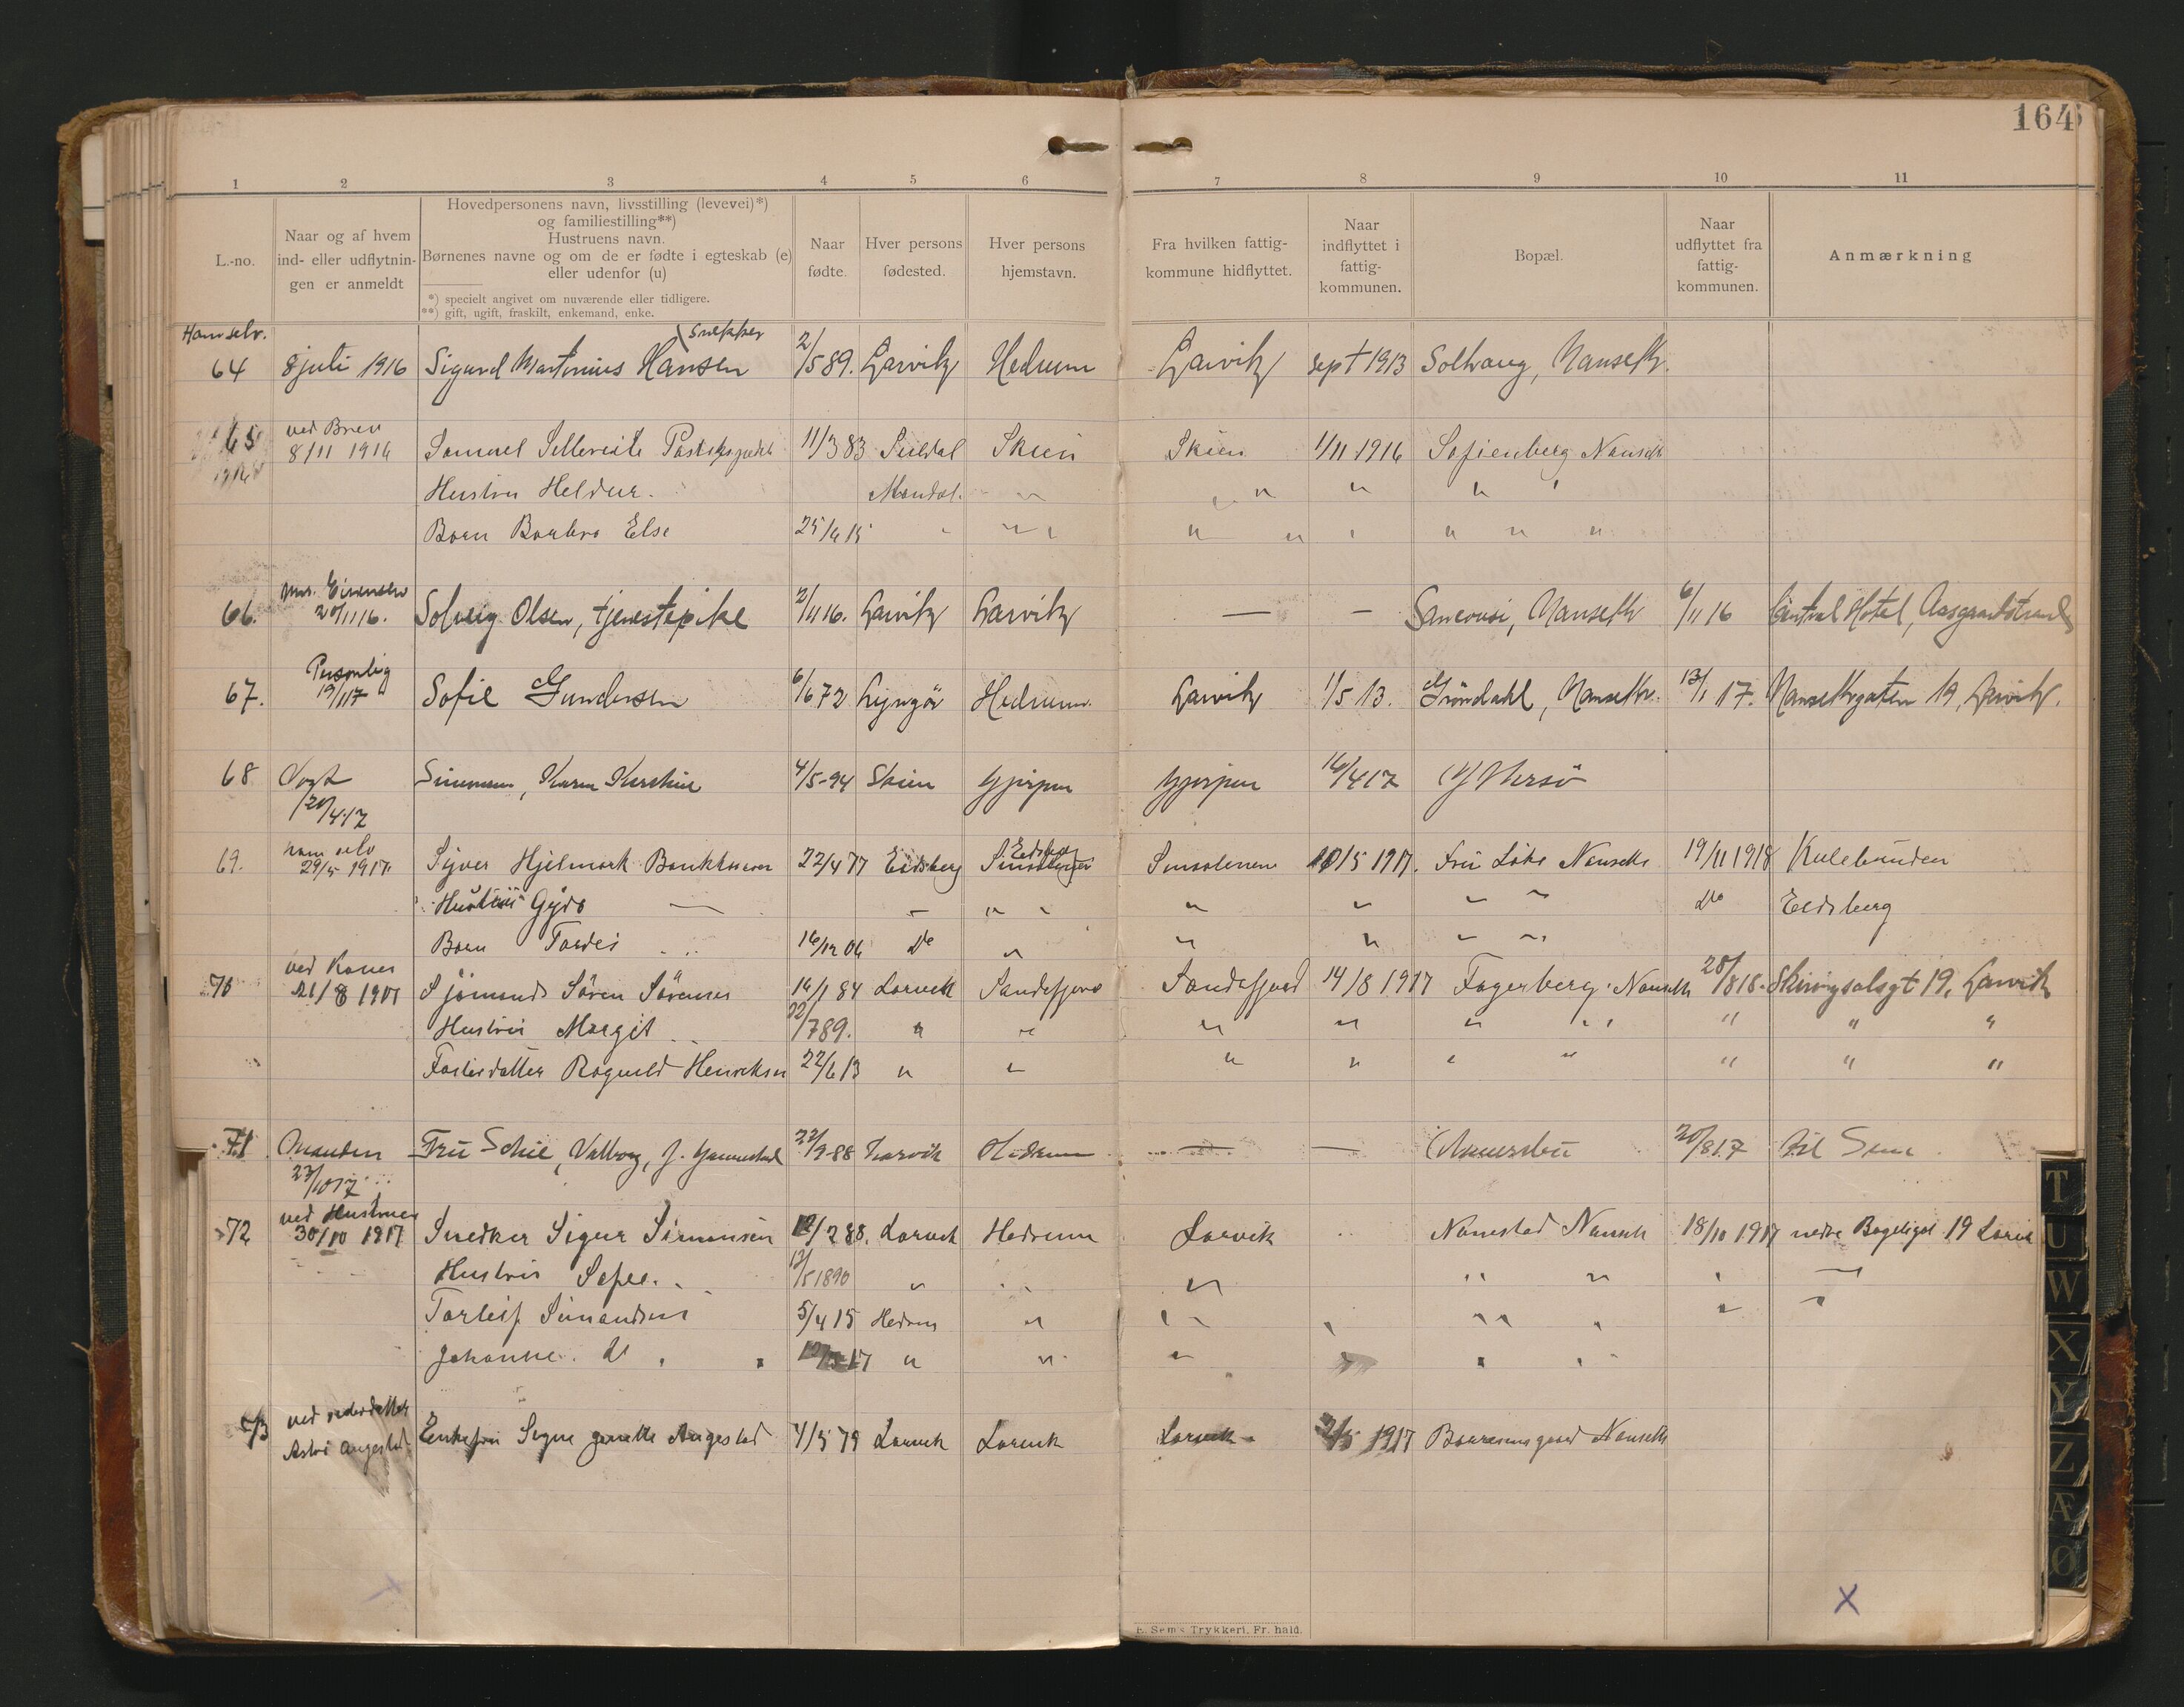 164
1 2 3 4 5 6 7 8 9 10 11
L.-no.
Naar og af hvem
ind- eller udflytnin-
gen er anmeldt
Hovedpersonens navn, livsstilling (levevei)*)
og familiestilling**)
Hustruens navn.
Børnenes navne og om de er fødte i egteskab (e)
eller udenfor (u)
*) specielt angivet om nuværende eller tidligere.
**) gift, ugift, fraskilt, enkemand, enke.
Naar
fødte.
Hver persons
fødested.
Hver persons
hjemstavn.
Fra hvilken fattig-
kommune hidflyttet.
Naar
indflyttet i
fattig-
kommunen.
Bopæl.
Naar
udflyttet fra
fattig-
kommunen.
Anmærkning
Ham selv. Snekker
64 8 juli 1916 Sigurd Martinius Hansen 2/5 89. Larvik Hedrum Larvik sept 1913 Solvang, Nanseth.
65 8/11 1916 Samuel 11/3 83 Suldal Skien Skien 1/11 1916 Sofienberg Nanseth
Hustru Mandal. " " " "
Barn Barbro Else " " " " " "
66. 20/11 16. Solveig Olsen, tjenestepike 2/11 16. Larvik Larvik — — Sanssouci, Nanseth 6/11 16 Central Hotel, Aasgaardstrand
Personlig
67. 19/1 17 Sofie Gundersen 6/6 72 Lyngör Hedrum Larvik 1/5 13. Gröndahl, Nanseth. 13/1 17. Nansethgaten 19, Larvik.
68 Vogt Simonsen, Karen Kirstine 4/5-94 Skien Gjerpen Gjerpen 16/4 17
20/4.17
ham selv Eidsberg
69. 29/5 1917. Syver Hjelmark 22/4 77 Eidsberg 10/5 1917. Nanseth 19/11 1918
Hustru — — " " " " " " do Eidsberg
Barn 16/12 04 do " " " " "
ved Konen
70 21/8 1917 Sjömand Sören Sörensen 14/1 84 Larvik Sandefjord Sandefjord 14/8 1917 Fagerberg. Nanseth 20/8 18. Skiringsalsgt 19, Larvik
Hustru Margit 22/7 89. " " " " " " " " "
Fosterdatter Ragnild Henriksen 22/6 13 " " " " " " " " "
71 Manden Fru Schie, Valborg, 22/9-88 Larvik Hedrum — — 20/8 17 til Sem
23/10 17
ved Hustruen
72 30/10 1917 Snedker Sigur Simonsen 12/2 88. Larvik Hedrum Larvik Nanestad Nanseth 18/10 1917 nedre Bøkeligt 19 Larvik
Hustru 13/5 1890 " " " " " " —
Torleif Simonsen 5/4 15 Hedrum " " " " " " "
Johanne. do 17 " " " " "
ved
73 Astri Angestad Enkefru Signe Angestad 4/5 79 Larvik Larvik Larvik 1917 Nanseth
X
E. Sem's Trykkeri, Fr. hald.
T
U
W
X
Y
Z
Æ
Ø